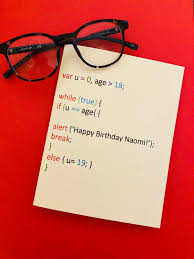 var u = 0, age > 18;
while (true) {
if (u == age( {
alert ('Happy Birthday Naomi!');
break;
}
else { u= 19; }
}